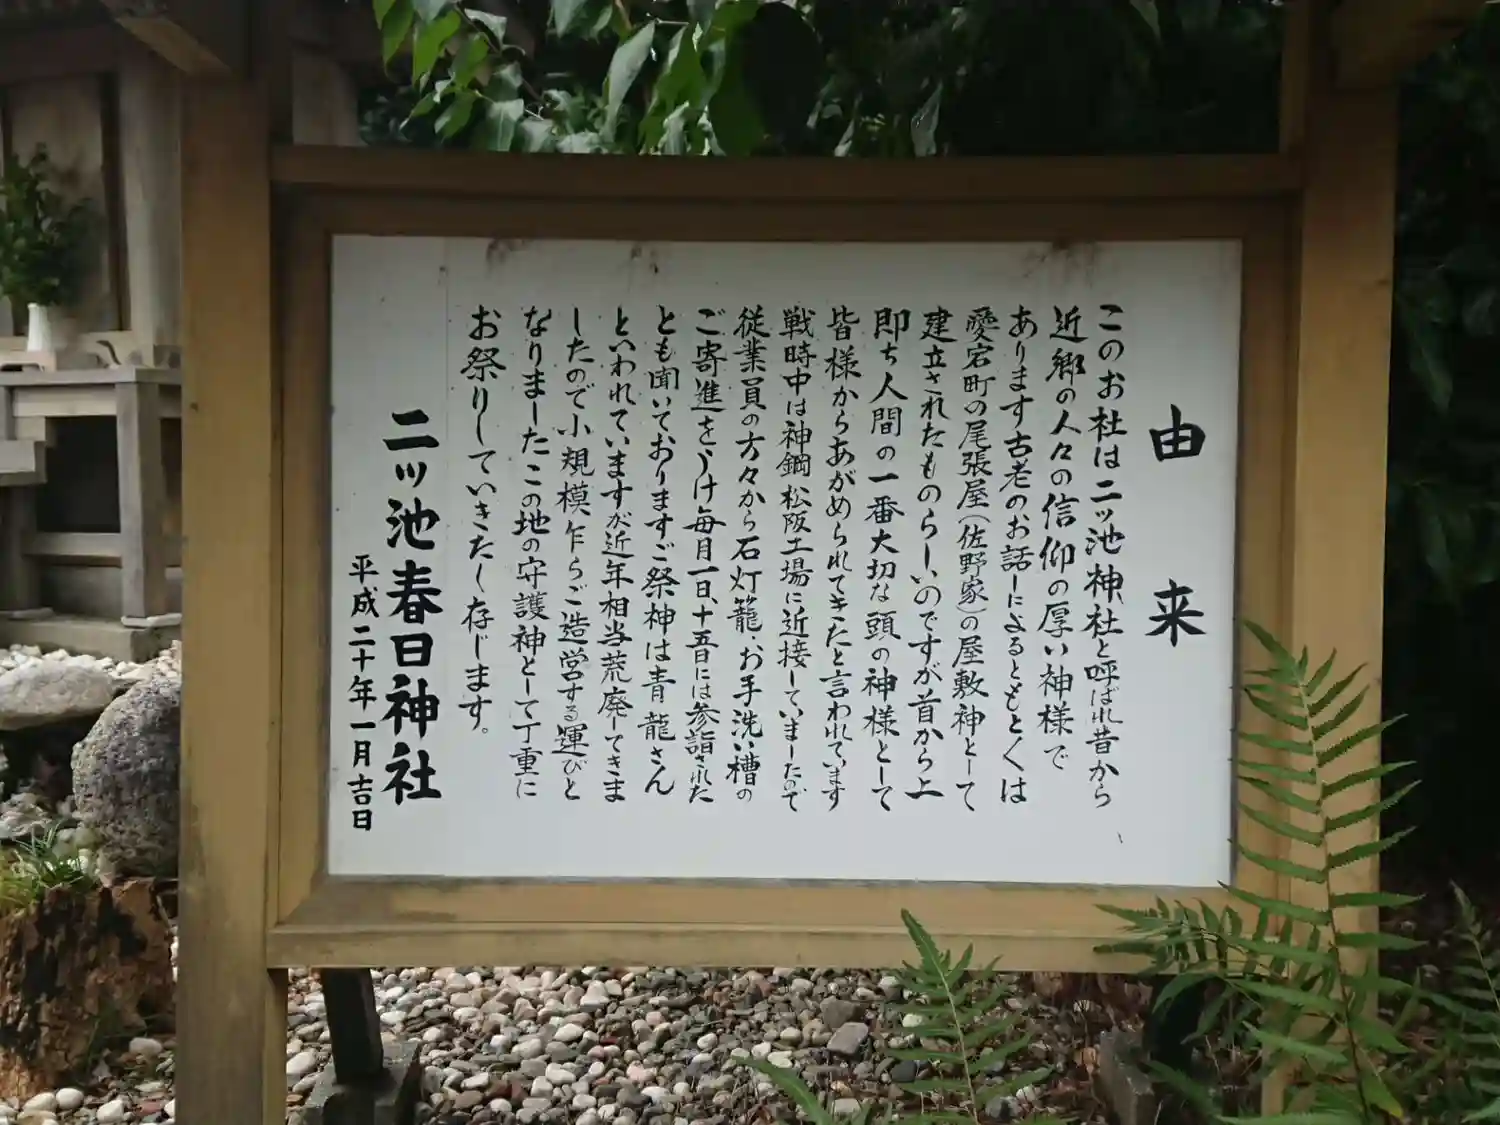 由来
このお社は二ッ池神社と呼ばれ昔から
近郷の人々の信仰の厚い神様で
あります古老のお話しによるともとくは
愛宕町の尾張屋(佐野家)の屋敷神として
建立されたものらしいのですが首から上
即ち人間の一番大切な頭の神様として
皆様からあがめられてきたと言われています
戦時中は神鋼松阪工場に近接していましたので
従業員の方々から石灯籠・お手洗い槽の
ご寄進をうけ毎月一日、十五日には参詣された
とも聞いておりますご祭神は青龍さん
といわれていますが近年相当荒廃してきま
したので小規模乍らご造営する運びと
なりましたこの地の守護神として丁重に
お祭りしていきたく存じます。
二ッ池春日神社
平成二十年一月吉日